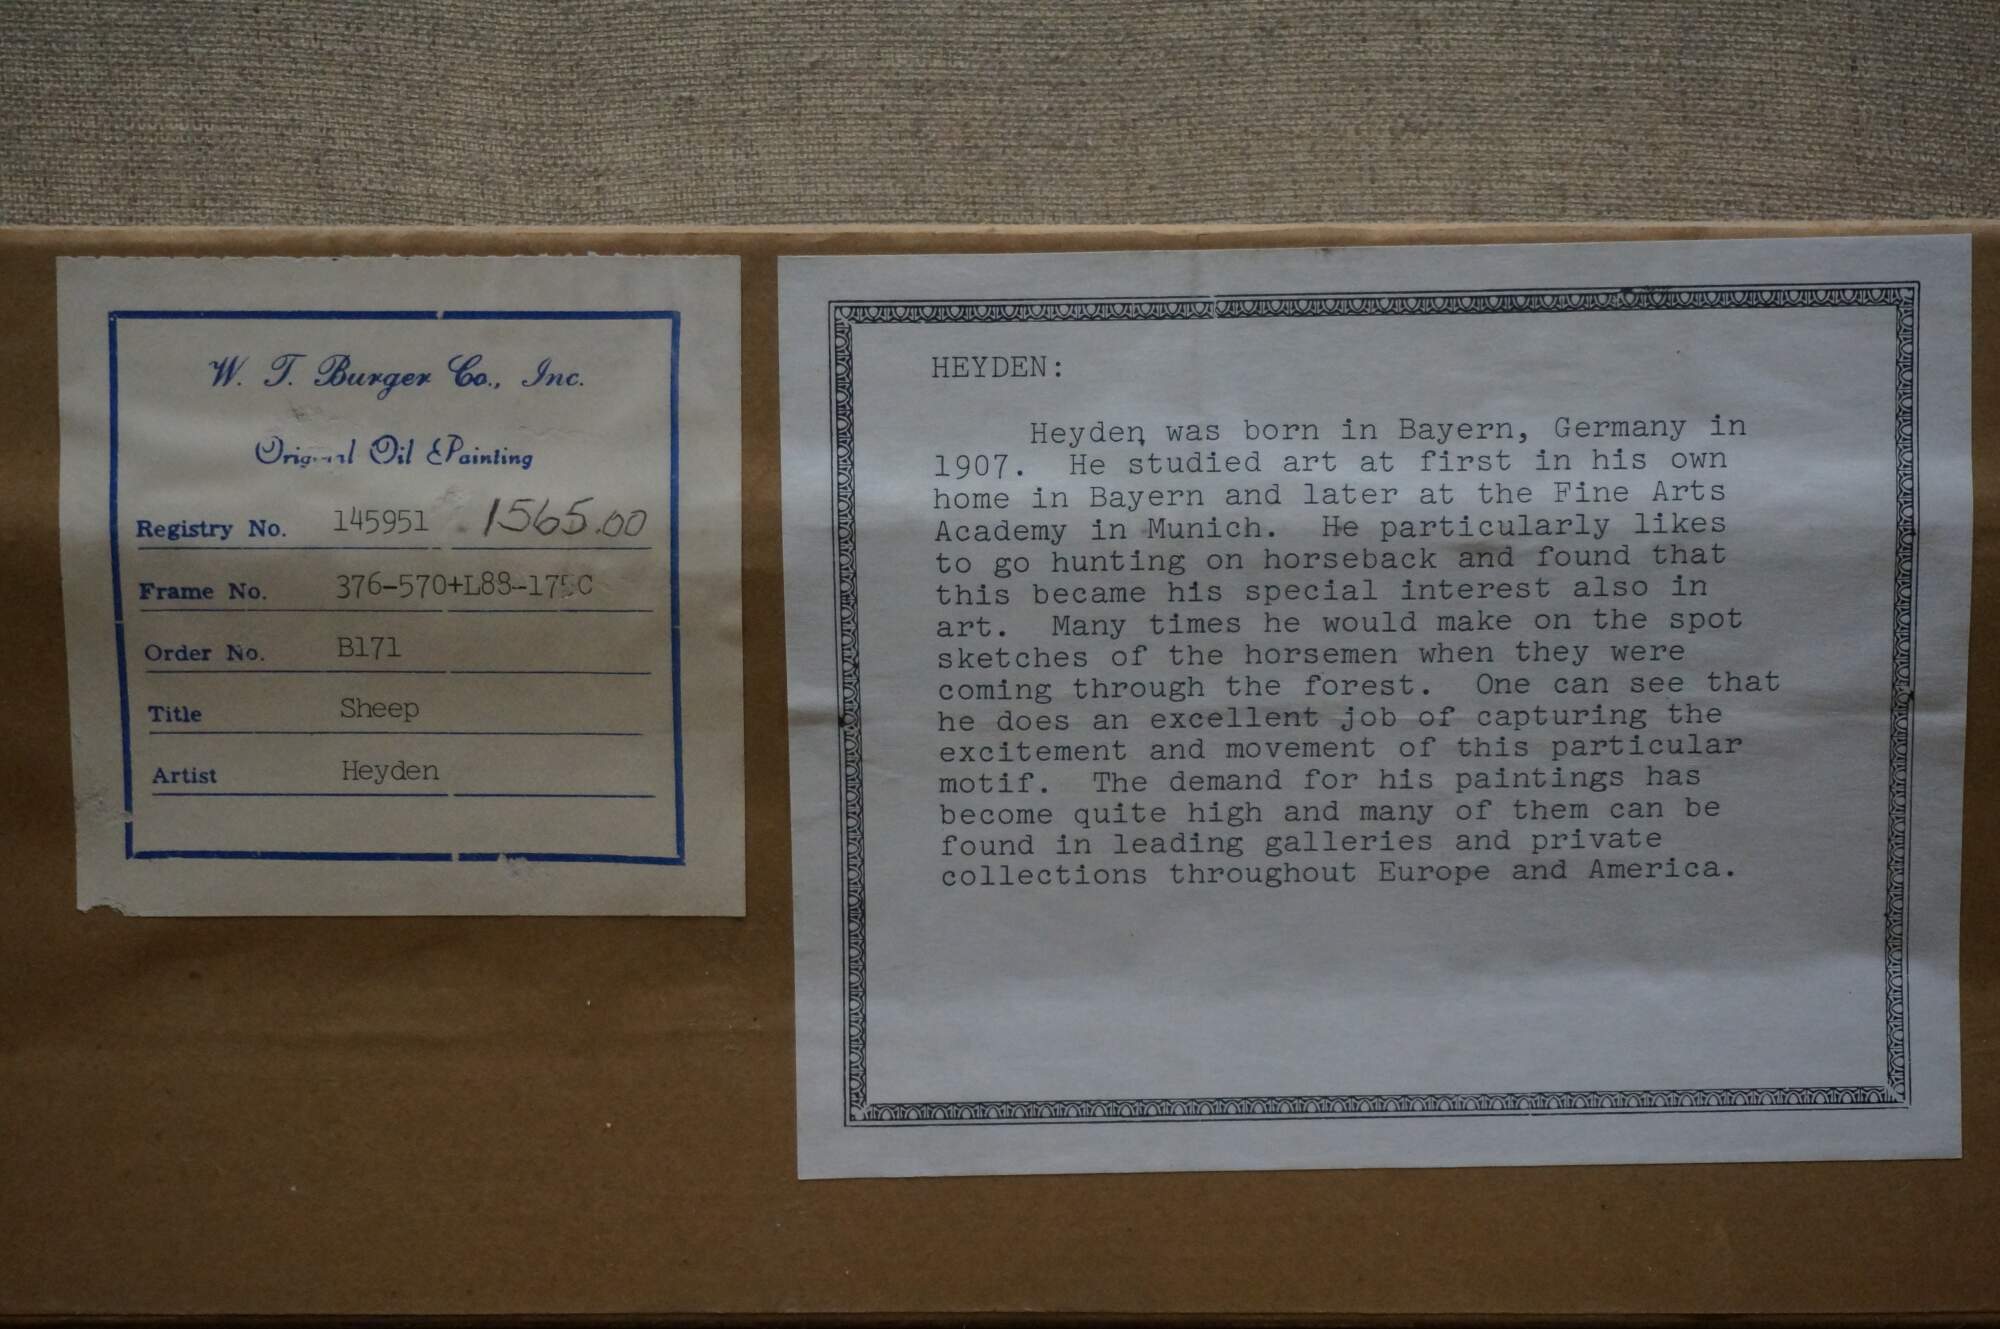 W. T. Burger Co., Inc.
Original Oil Painting
Registry No. 145951 1565.00
Frame No.
Order No. B171
Title Sheep
Artist Heyden
HEYDEN:
Heyden was born in Bayern, Germany in
1907. He studied art at first in his own
home in Bayern and later at the Fine Arts
Academy in Munich. He particularly likes
to go hunting on horseback and found that
this became his special interest also in
art. Many times he would make on the spot
sketches of the horsemen when they were
coming through the forest. One can see that
he does an excellent job of capturing the
excitement and movement of this particular
motif. The demand for his paintings has
become quite high and many of them can be
found in leading galleries and private
collections throughout Europe and America.